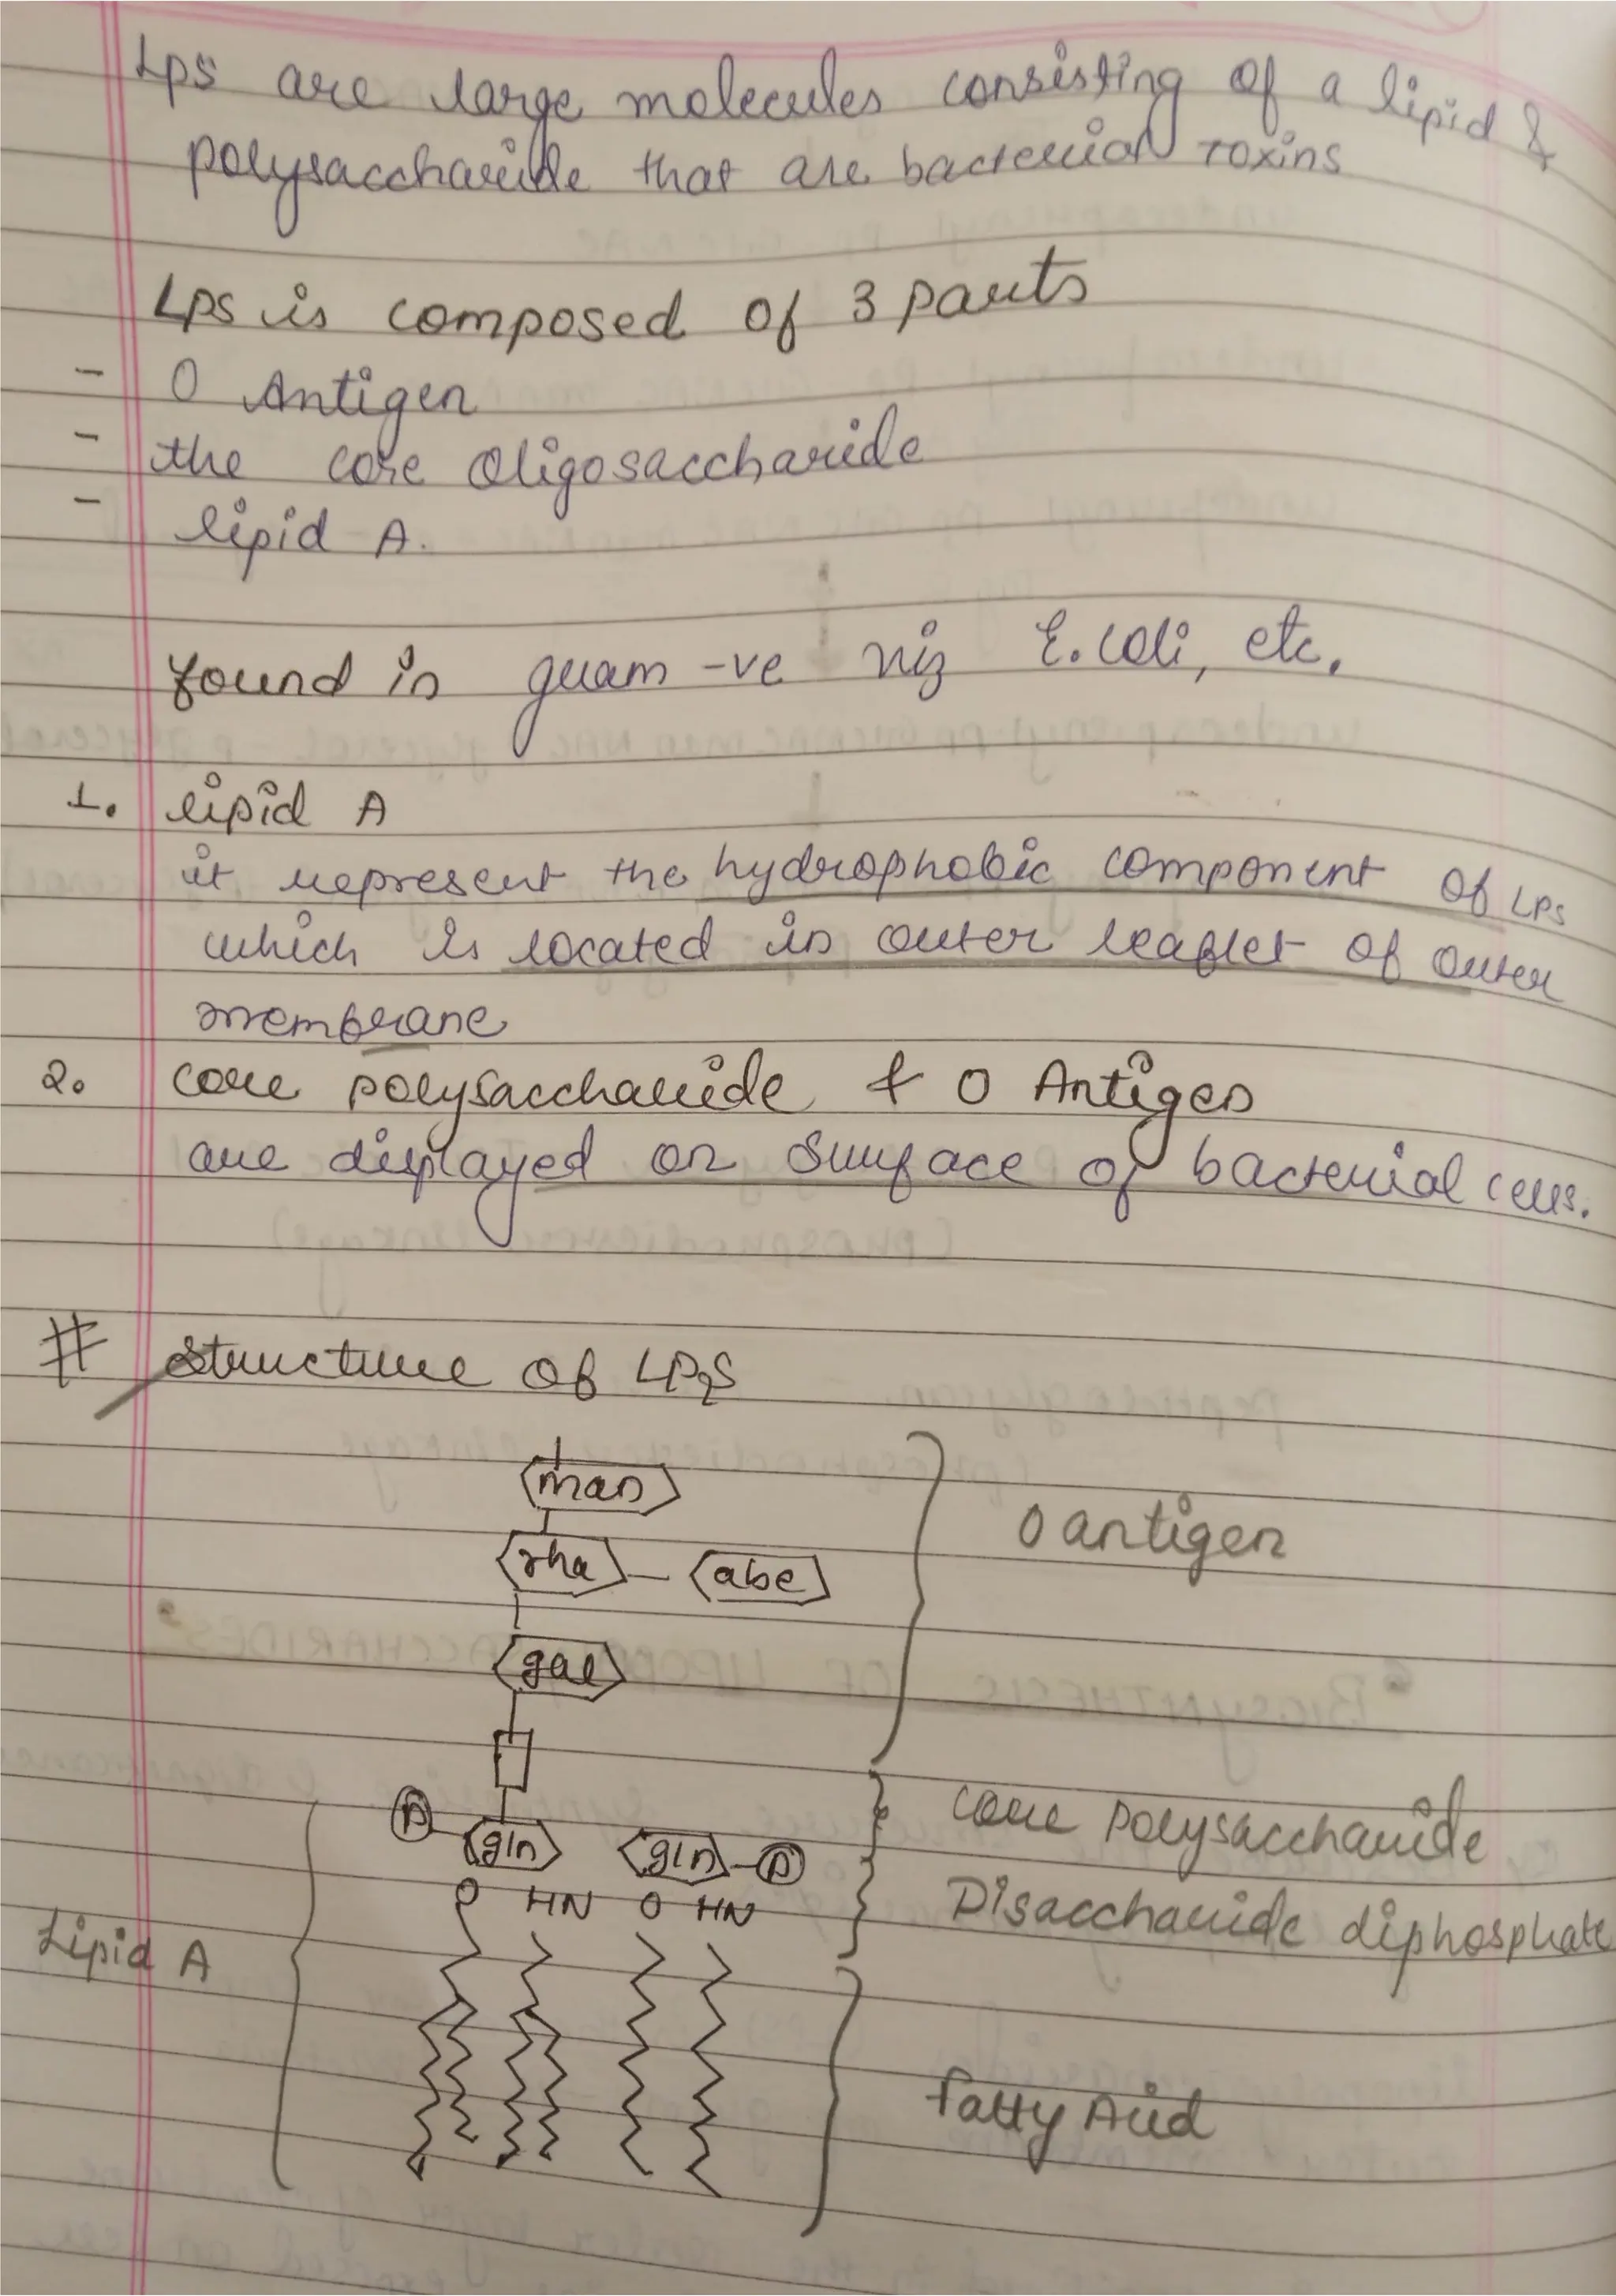 Lps are large molecules consisting of a lipid &
polysaccharide that are bacterial toxins
Lps is composed of 3 parts
- O Antigen
- the core oligosaccharide
- lipid A.
found in gram -ve viz E.coli, etc.
1. lipid A
it represent the hydrophobic component of LPS
which is located in outer leaflet of outer
membrane
2. core polysaccharide & O Antigen
are displayed on surface of bacterial cells.
# Structure of LPS
man
rha - abe
O antigen
gal
core polysaccharide
P gln gln - P
O HN O HN
Disaccharide diphosphate
Lipid A
Fatty Acid